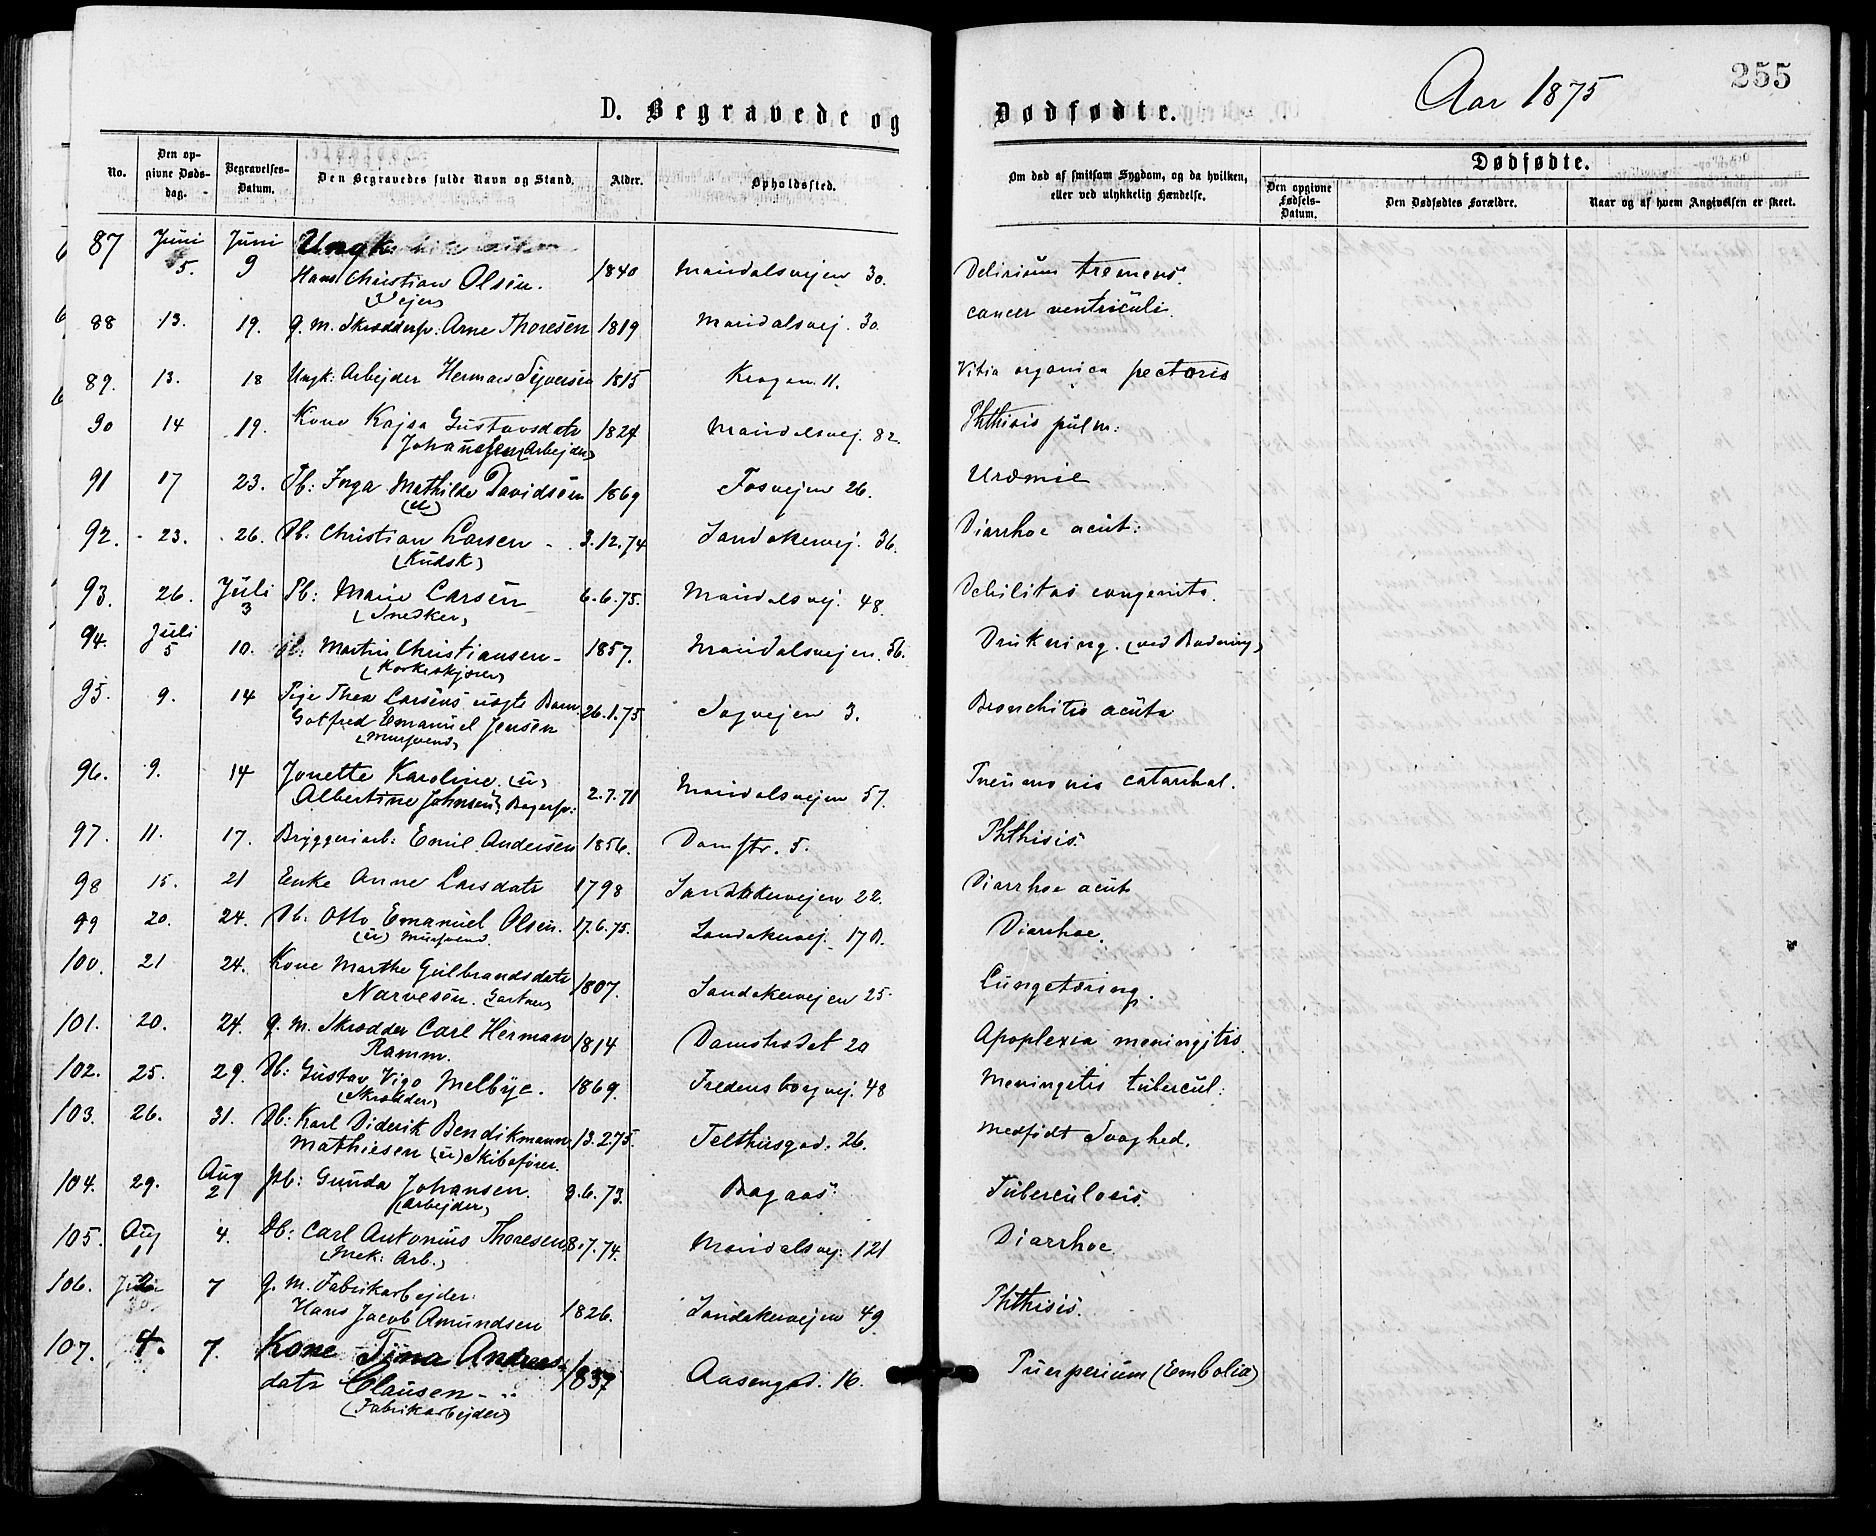 D. Begravede og Dødfødte. Aar 1875 255
No. Den opgivne Dødsdag. Begravelses-Datum. Den Begravedes fulde Navn og Stand. Alder. Opholdssted. Om død af smitsom Sygdom, og da hvilken, eller ved ulykkelig Hændelse. Dødfødte. Den opgivne Fødsels-Datum. Den Dødfødtes Forældre. Naar og af hvem Angivelsen er skeet.
87 Juni 5. Juni 9 Ungk.
Hans Christian Olsen. 1840 Maridalsveien 30. Delirium tremens.
88 13. 19. g. M. Arne Thoresen 1819 Maridalsvej. 30. cancer ventriculi.
89. 13. 18 Ungk: Arbejder Herman Syversen 1815 Krogen 11. Vitia organica pectoris
90 14 19. Kone Kajsa Gustavsdatr 1824 Maridalsvej. 82. Phthisis pulm:
Johansen (Arbejder)
91 17 23. Pb: Inga Mathilde Davidsen 1869 Fosvejen 26. Uræmie
(u)
92. 23. 26. Db. Christian Larsen 3.12.74 Sandakervej. 36. Diarrhoe acut:
(Kudsk)
93. 26. Juli 3 Pb: Marie Larsen 6.6.75. Maridalsvej. 48 Debilitas congenita.
(Snedker)
94. Juli 5 10. Martin Christiansen 1857. Maridalsvejen. 56. Drukning. (ved Badning)
95. 9. 14 Pige Thea Larsens uægte Barn
Gotfred Emanuel Jensen 26.1.75 Sagvejen 3. Bronchitis acuta
(Mursvend)
96. 9. 14 Jonette Karoline (u)
Albertine Johnsen, Bagersv: 2.7.71 Maridalsvejen 57. Pneumonia catarrhal.
97. 11. 17. Bryggeriarb: Emil Andersen 1856. Damstr. 5. Phthisis.
98 15. 21 Enke Anne Larsdatr 1798 Sandakervejen 22. Diarrhoe acut
99 20. 24. Db. Otto Emanuel Olsen. 17.6.75. Sandakervej. 17 B. Diarrhoe.
(u) Mursvend.
100. 21 24. Kone Marthe Gulbrandsdatr
Narvesen. (Gartner) 1807. Sandakervejen 25. Lungetæring.
101. 20. 24. g. M. Skrædder Carl Herman
Ramm. 1814 Damstrædet 20 Apoplexia meningitis.
102. 25. 29. Db: Gustav Vigo Melbye. 1869. Fredensborgvej. 48 Meningitis tubercul:
(Skrædder)
103. 26. 31. Db: Karl Diderik Bendikmann
Mathiesen (u) Skibsfører. 13.2.75. Telthusgad. 26. Medfødt Svaghed.
104. 29. Aug 2 Pb: Gunda Johansen. 3.6.73. Bagaas. Tuberculosis.
(Arbejder)
105. Aug 1 4. Db: Carl Antonius Thoresen 8.7.74. Maridalsvej: 121 Diarrhoe.
(Mek: Arb.)
106. 7 g. M. Fabrikarbejder.
Hans Jacob Amundsen 1826. Sandakervejen 49. Phthisis.
107. 4. 7. Kone Tina Anders
datr Clausen 1837 Aasengad. 16. Puerperium (Embolia)
(Fabrikarbejder)